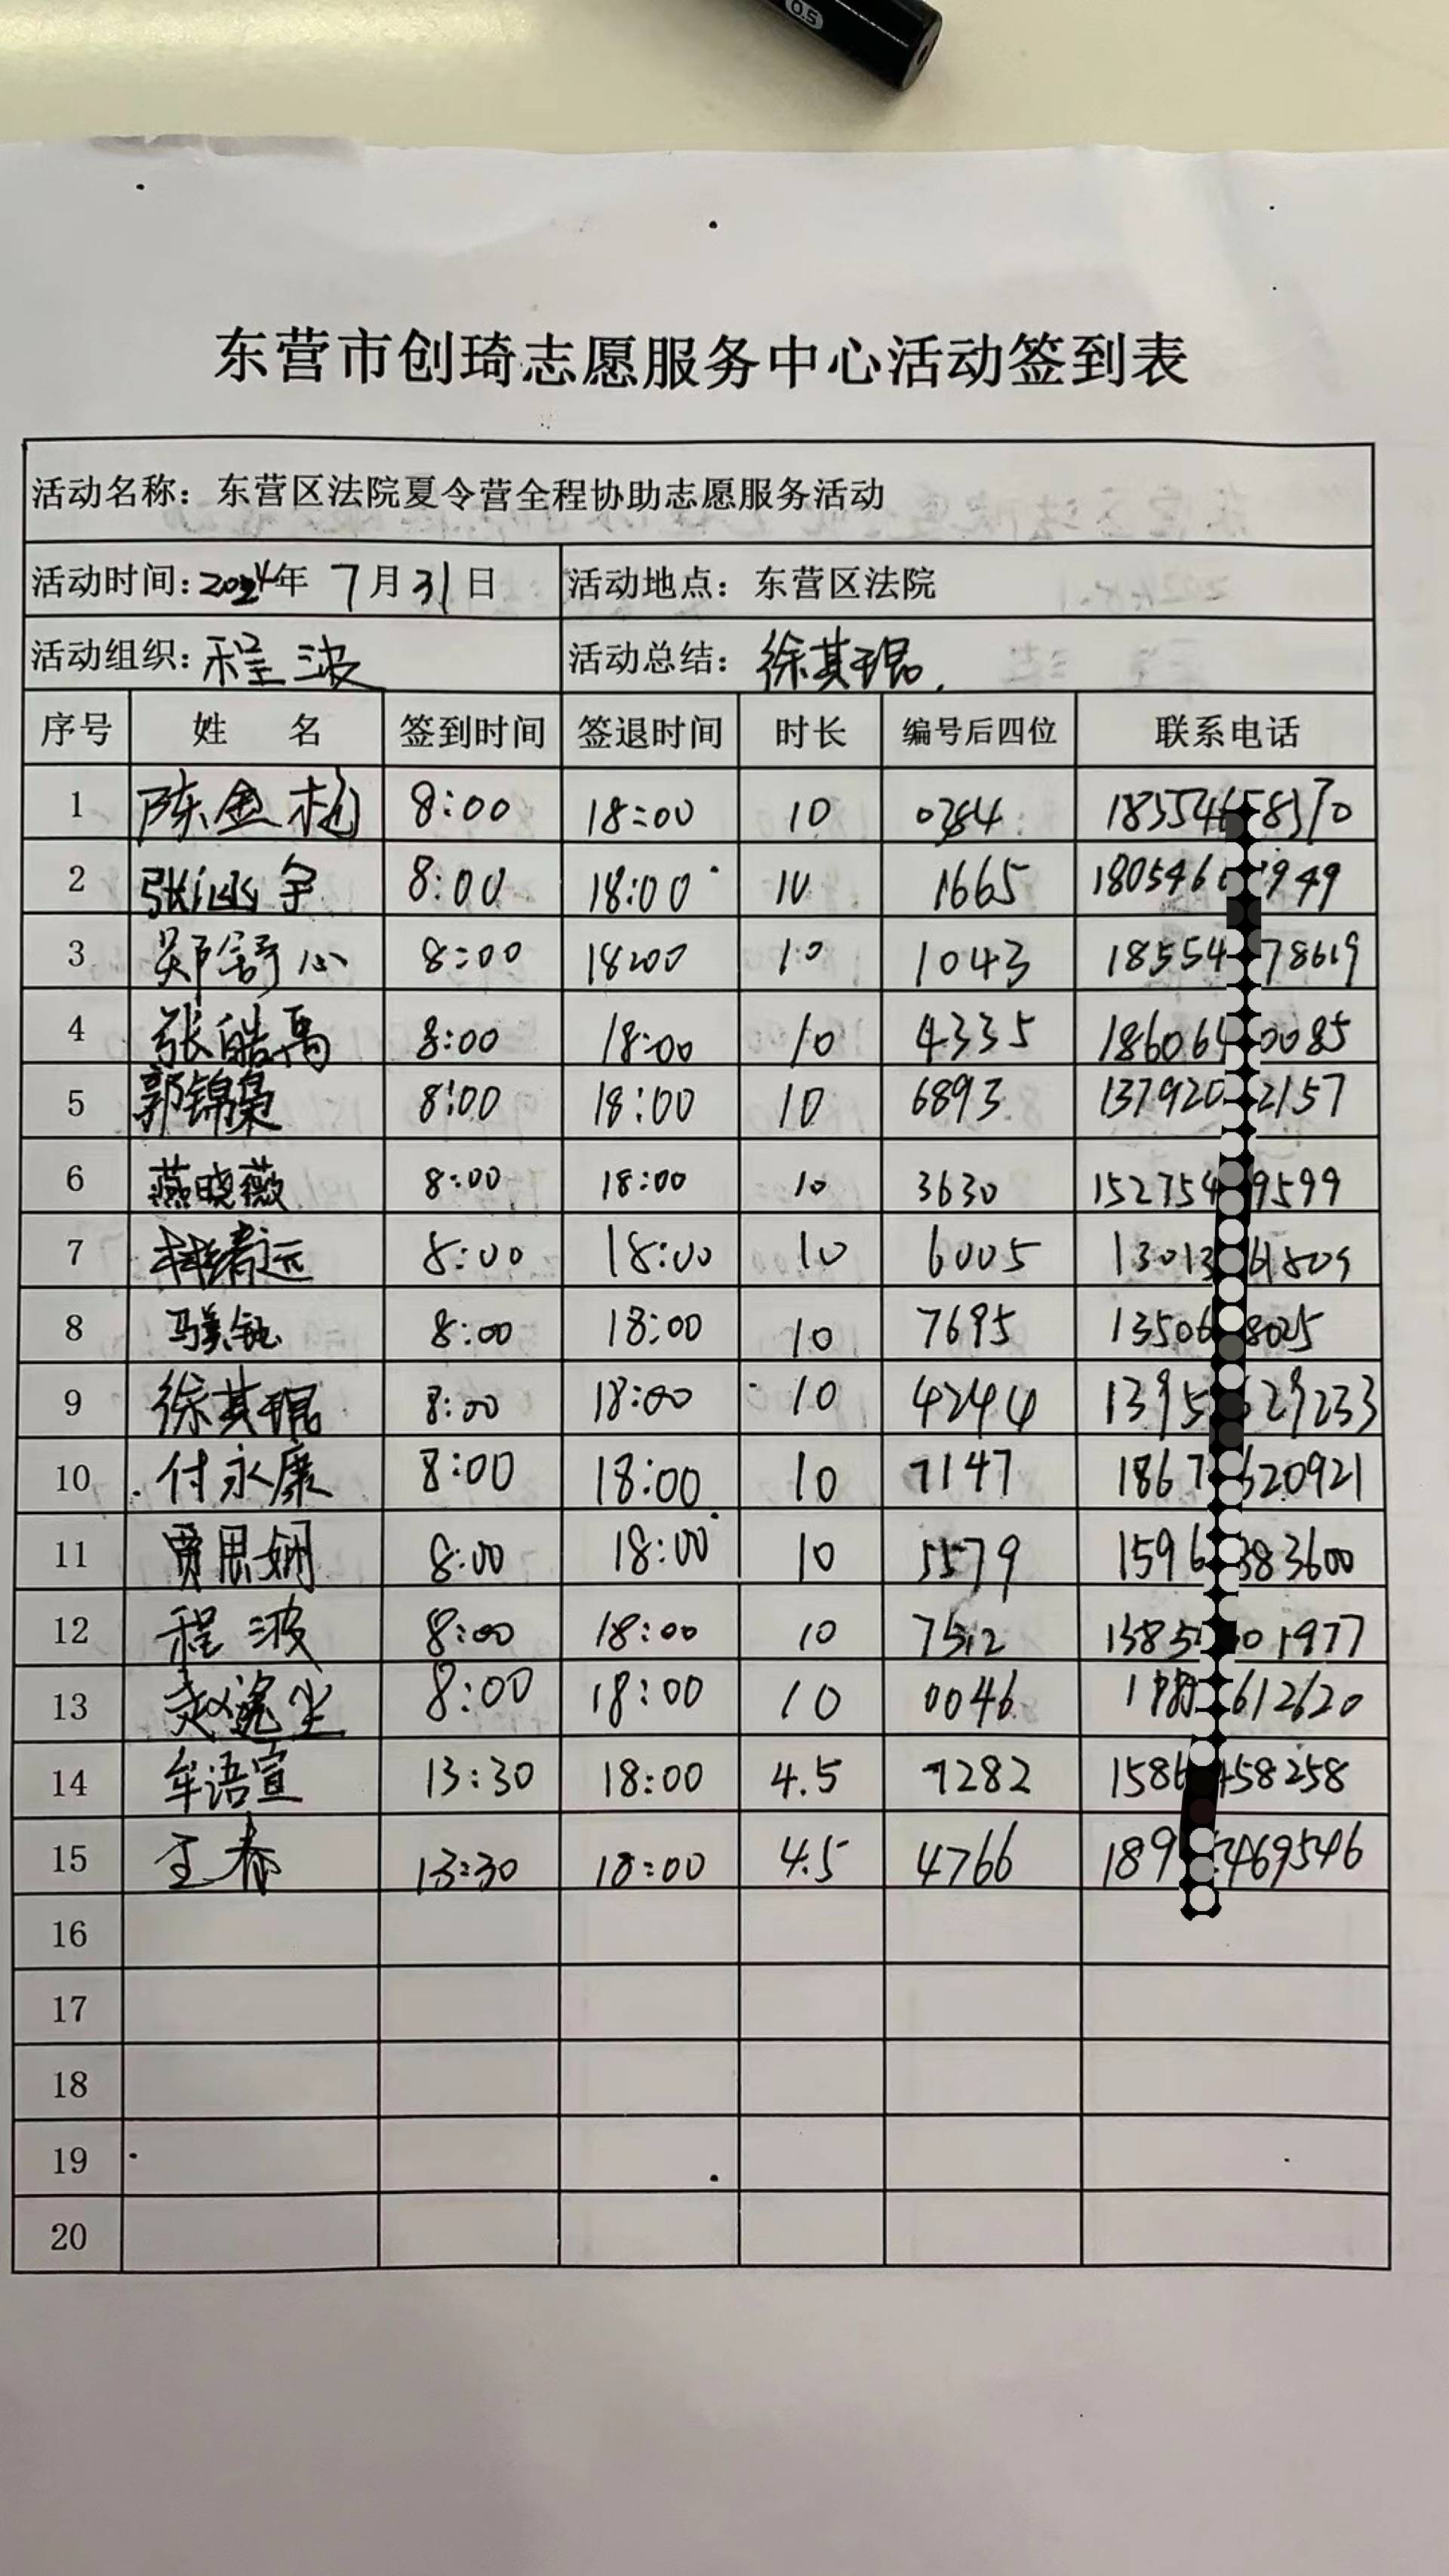 0.5
东营市创琦志愿服务中心活动签到表
活动名称：东营区法院夏令营全程协助志愿服务活动
活动时间：2024年 7月31日 活动地点：东营区法院
活动组织：程波 活动总结：徐其琨
序号 姓 名 签到时间 签退时间 时长 编号后四位 联系电话
1 陈金 8:00 18:00 10
2 张涵宇 8:00 18:00 10 1665
3 郑舒心 8:00 18:00 10 1043 18554 78619
4 张皓禹 8:00 18:00 10 4335 0085
5 郭锦枭 8:00 18:00 10 6893 137920 2157
6 燕晓薇 8:00 18:00 10 3630 152754 9599
7 8:00 18:00 10 6005 13013
8 马美钰 8:00 18:00 10 7695 13506 8025
9 徐其琨 8:00 18:00 10 4244 1395 29233
10 付永康 8:00 18:00 10 7147 1867 620921
11 贾思娴 8:00 18:00 10 5579 1596 383600
12 程波 8:00 18:00 10 7512 1385
13 赵 8:00 18:00 10 0046 612620
14 牟语宣 13:30 18:00 4.5 7282 1586 58258
15 王春 13:30 18:00 4.5 4766 189 469546
16
17
18
19
20